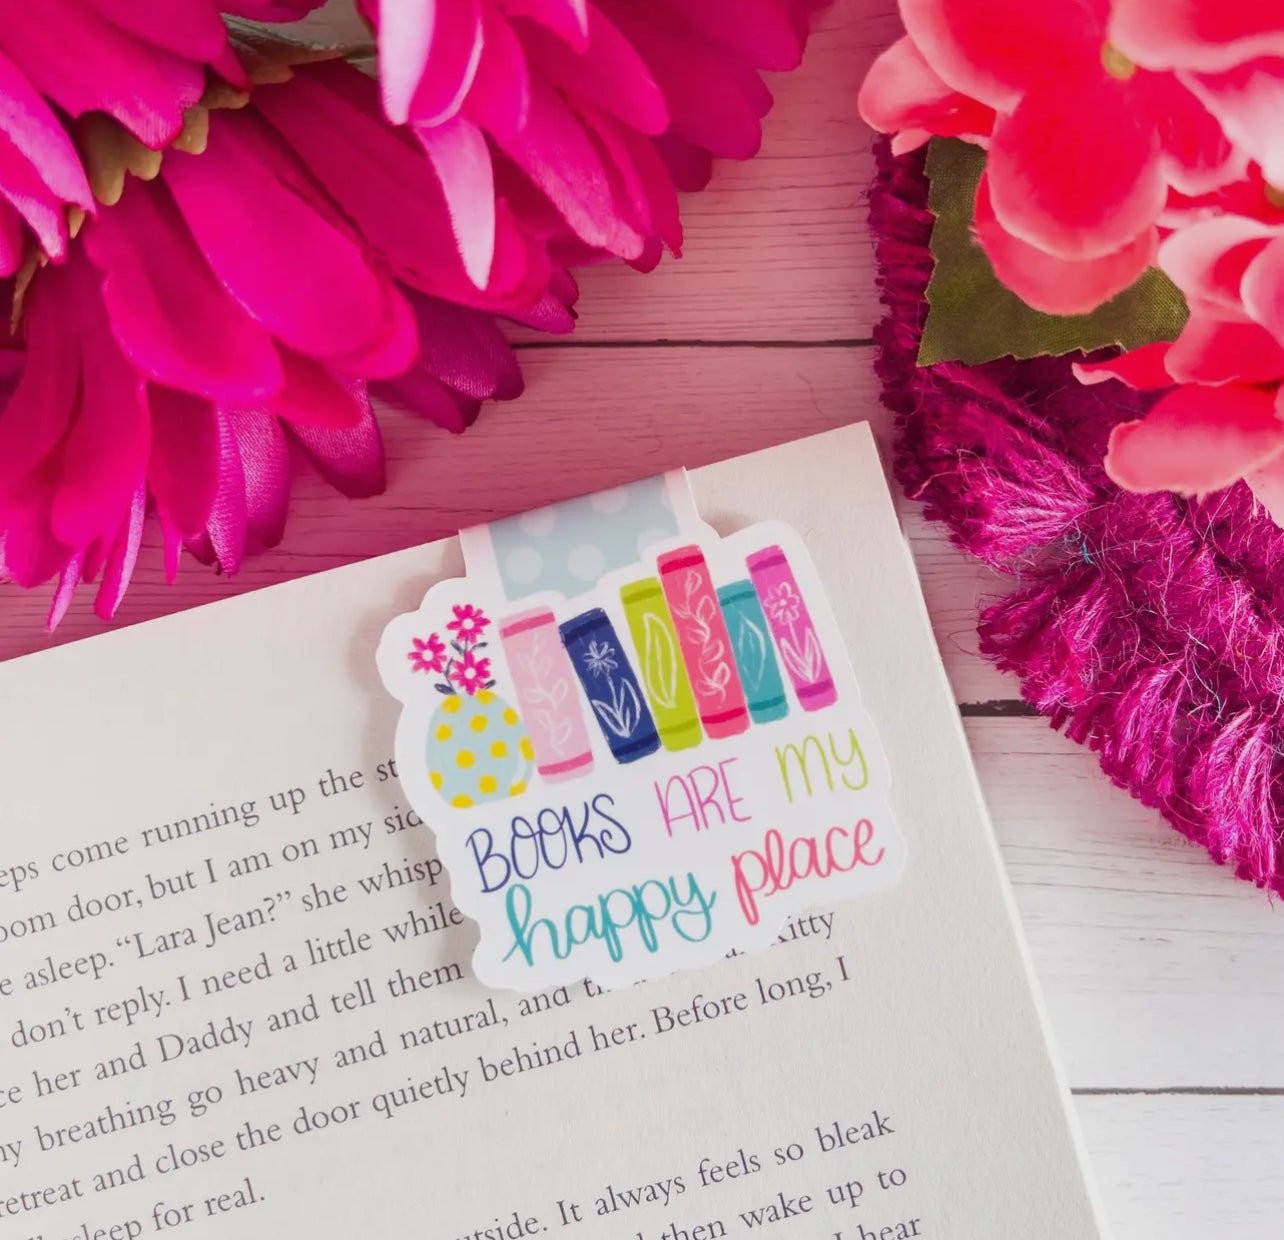 BOOKS ARE MY
happy place
come running up the
door, but I am on my
asleep. “Lara Jean?” she
don’t reply. I need a little while
her and Daddy and tell them
Kitty
breathing go heavy and natural, and
retreat and close the door quietly behind her. Before long, I
for real.
It always feels so bleak
then wake up to
I hear